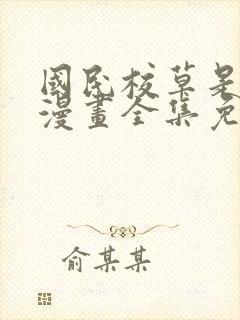 國民校草是
漫畫全集免
俞某某